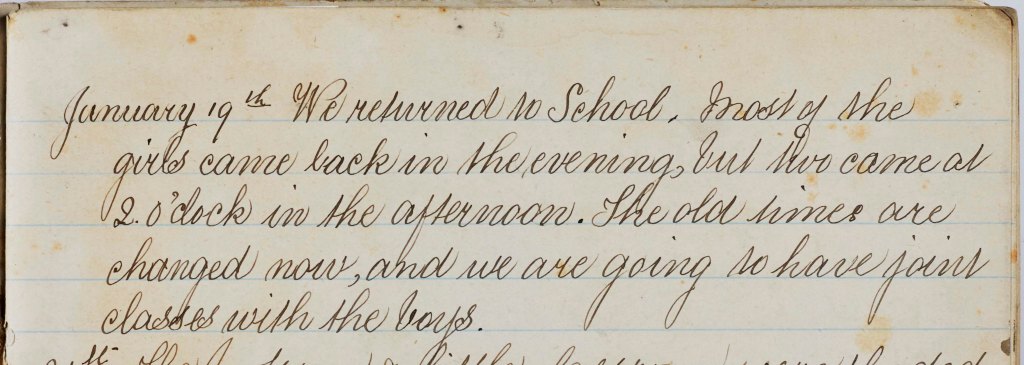 January 19th We returned to School. Most of the
girls came back in the evening, but two came at
2. o'clock in the afternoon. The old times are
changed now, and we are going to have joint
classes with the boys.